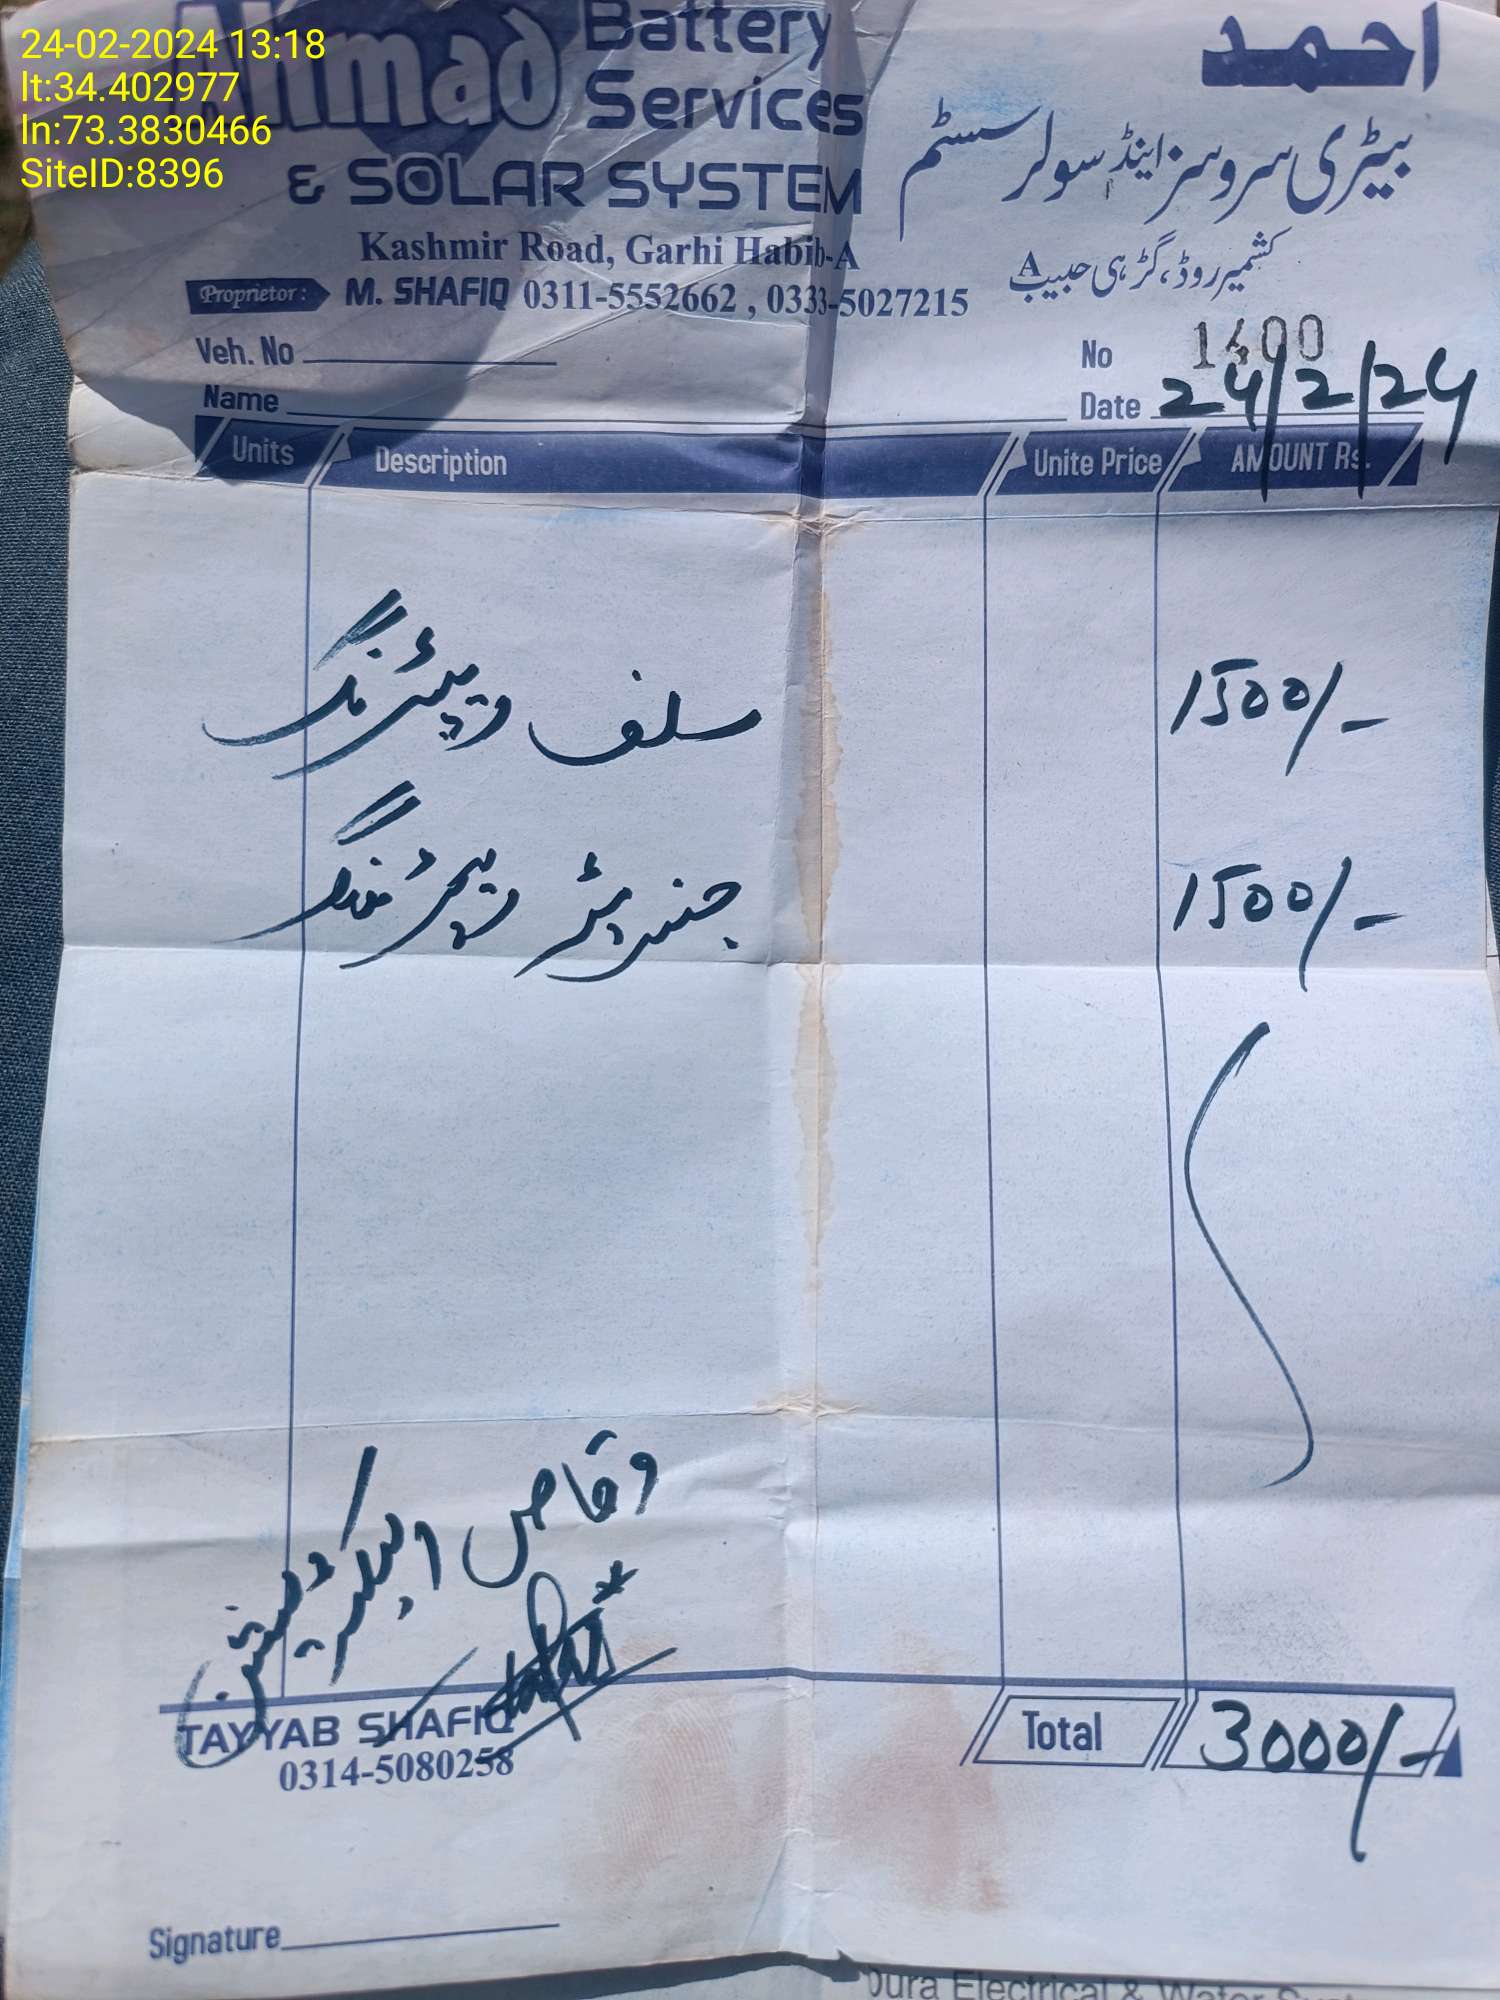 24-02-2024 13:18
lt:34.402977
ln:73.3830466
SiteID:8396
Ahmad Battery Services
& SOLAR SYSTEM
احمد
بیٹری سروسز اینڈ سولر سسٹم
Kashmir Road, Garhi Habib-A
کشمیر روڈ، گڑھی حبیب A
Proprietor: M. SHAFIQ 0311-5552662 , 0333-5027215
Veh. No
No 1400
Name
Date 24/2/24
Units Description Unite Price AMOUNT Rs.
سلف ریپئرنگ 1500/-
جنریٹر ریپئرنگ 1500/-
وقاص الیکٹریشن
TAYYAB SHAFIQ
0314-5080258
Total 3000/-
Signature
Dura Electrical & Water